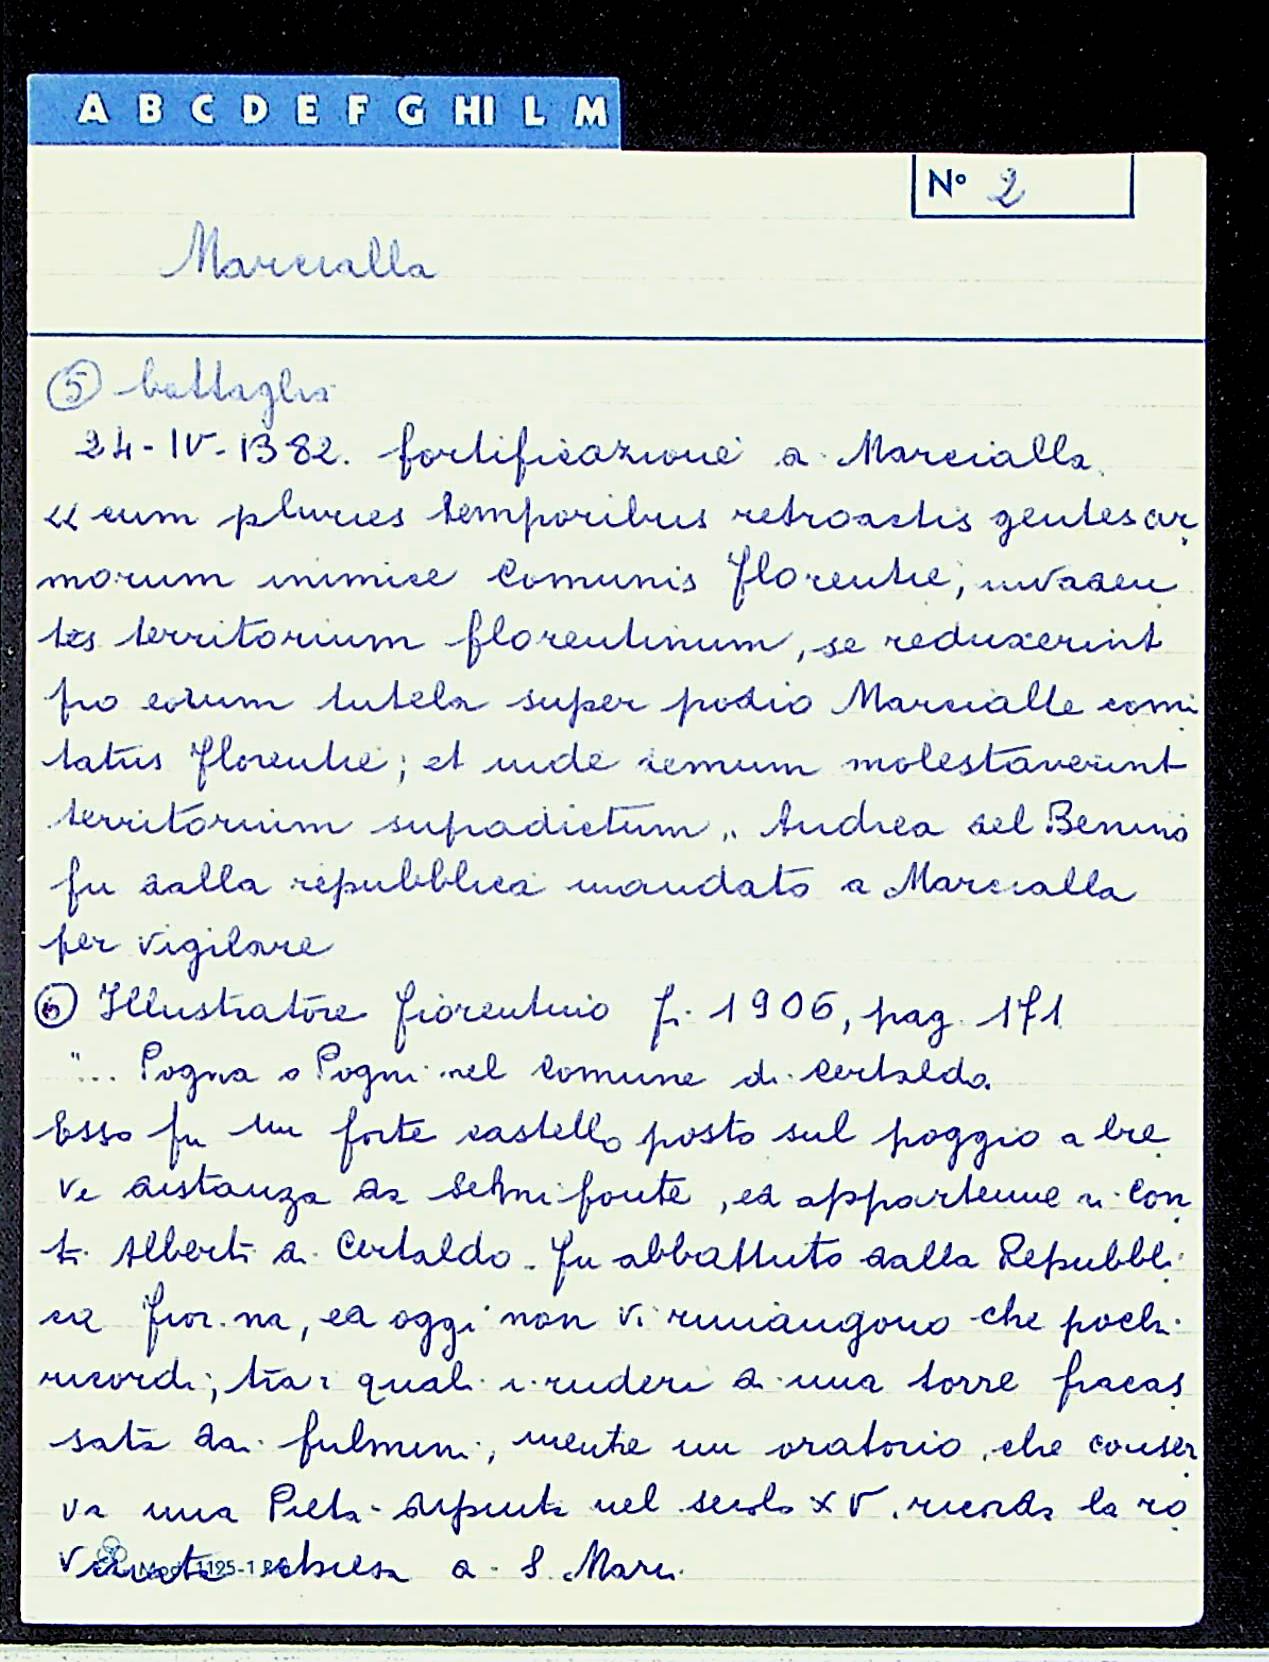 A B C D E F G HI L M
N° 2
Marcialla
⑤ battaglia
24-IV-1382. fortificazione a Marcialla.
« cum pluries temporibus retroactis gentes ar
morum inimice Comunis Florentie, invaden
tes territorium florentinum, se reduxerint
pro eorum tutela super podio Marcialle comi
tatus Florentie; et inde demum molestaverint
territorium supradictum „ Andrea del Benino
fu dalla repubblica mandato a Marcialla
per vigilare
⑥ Illustratore fiorentino fi. 1906, pag. 171
"... Pogna o Pogni nel comune di Certaldo.
Esso fu un forte castello posto sul poggio a bre
ve distanza da Semifonte, ed appartenne ai Con
ti Alberti di Certaldo. Fu abbattuto dalla Repubbli
ca fior.na, ed oggi non vi rimangono che pochi
ricordi; tra i quali i ruderi di una torre fracas
sata dai fulmini, mentre un oratorio, che conser
va una Pietà dipinta nel secolo XV, ricorda la ro
vinata chiesa di S. Maria.
Mod. 1125-1